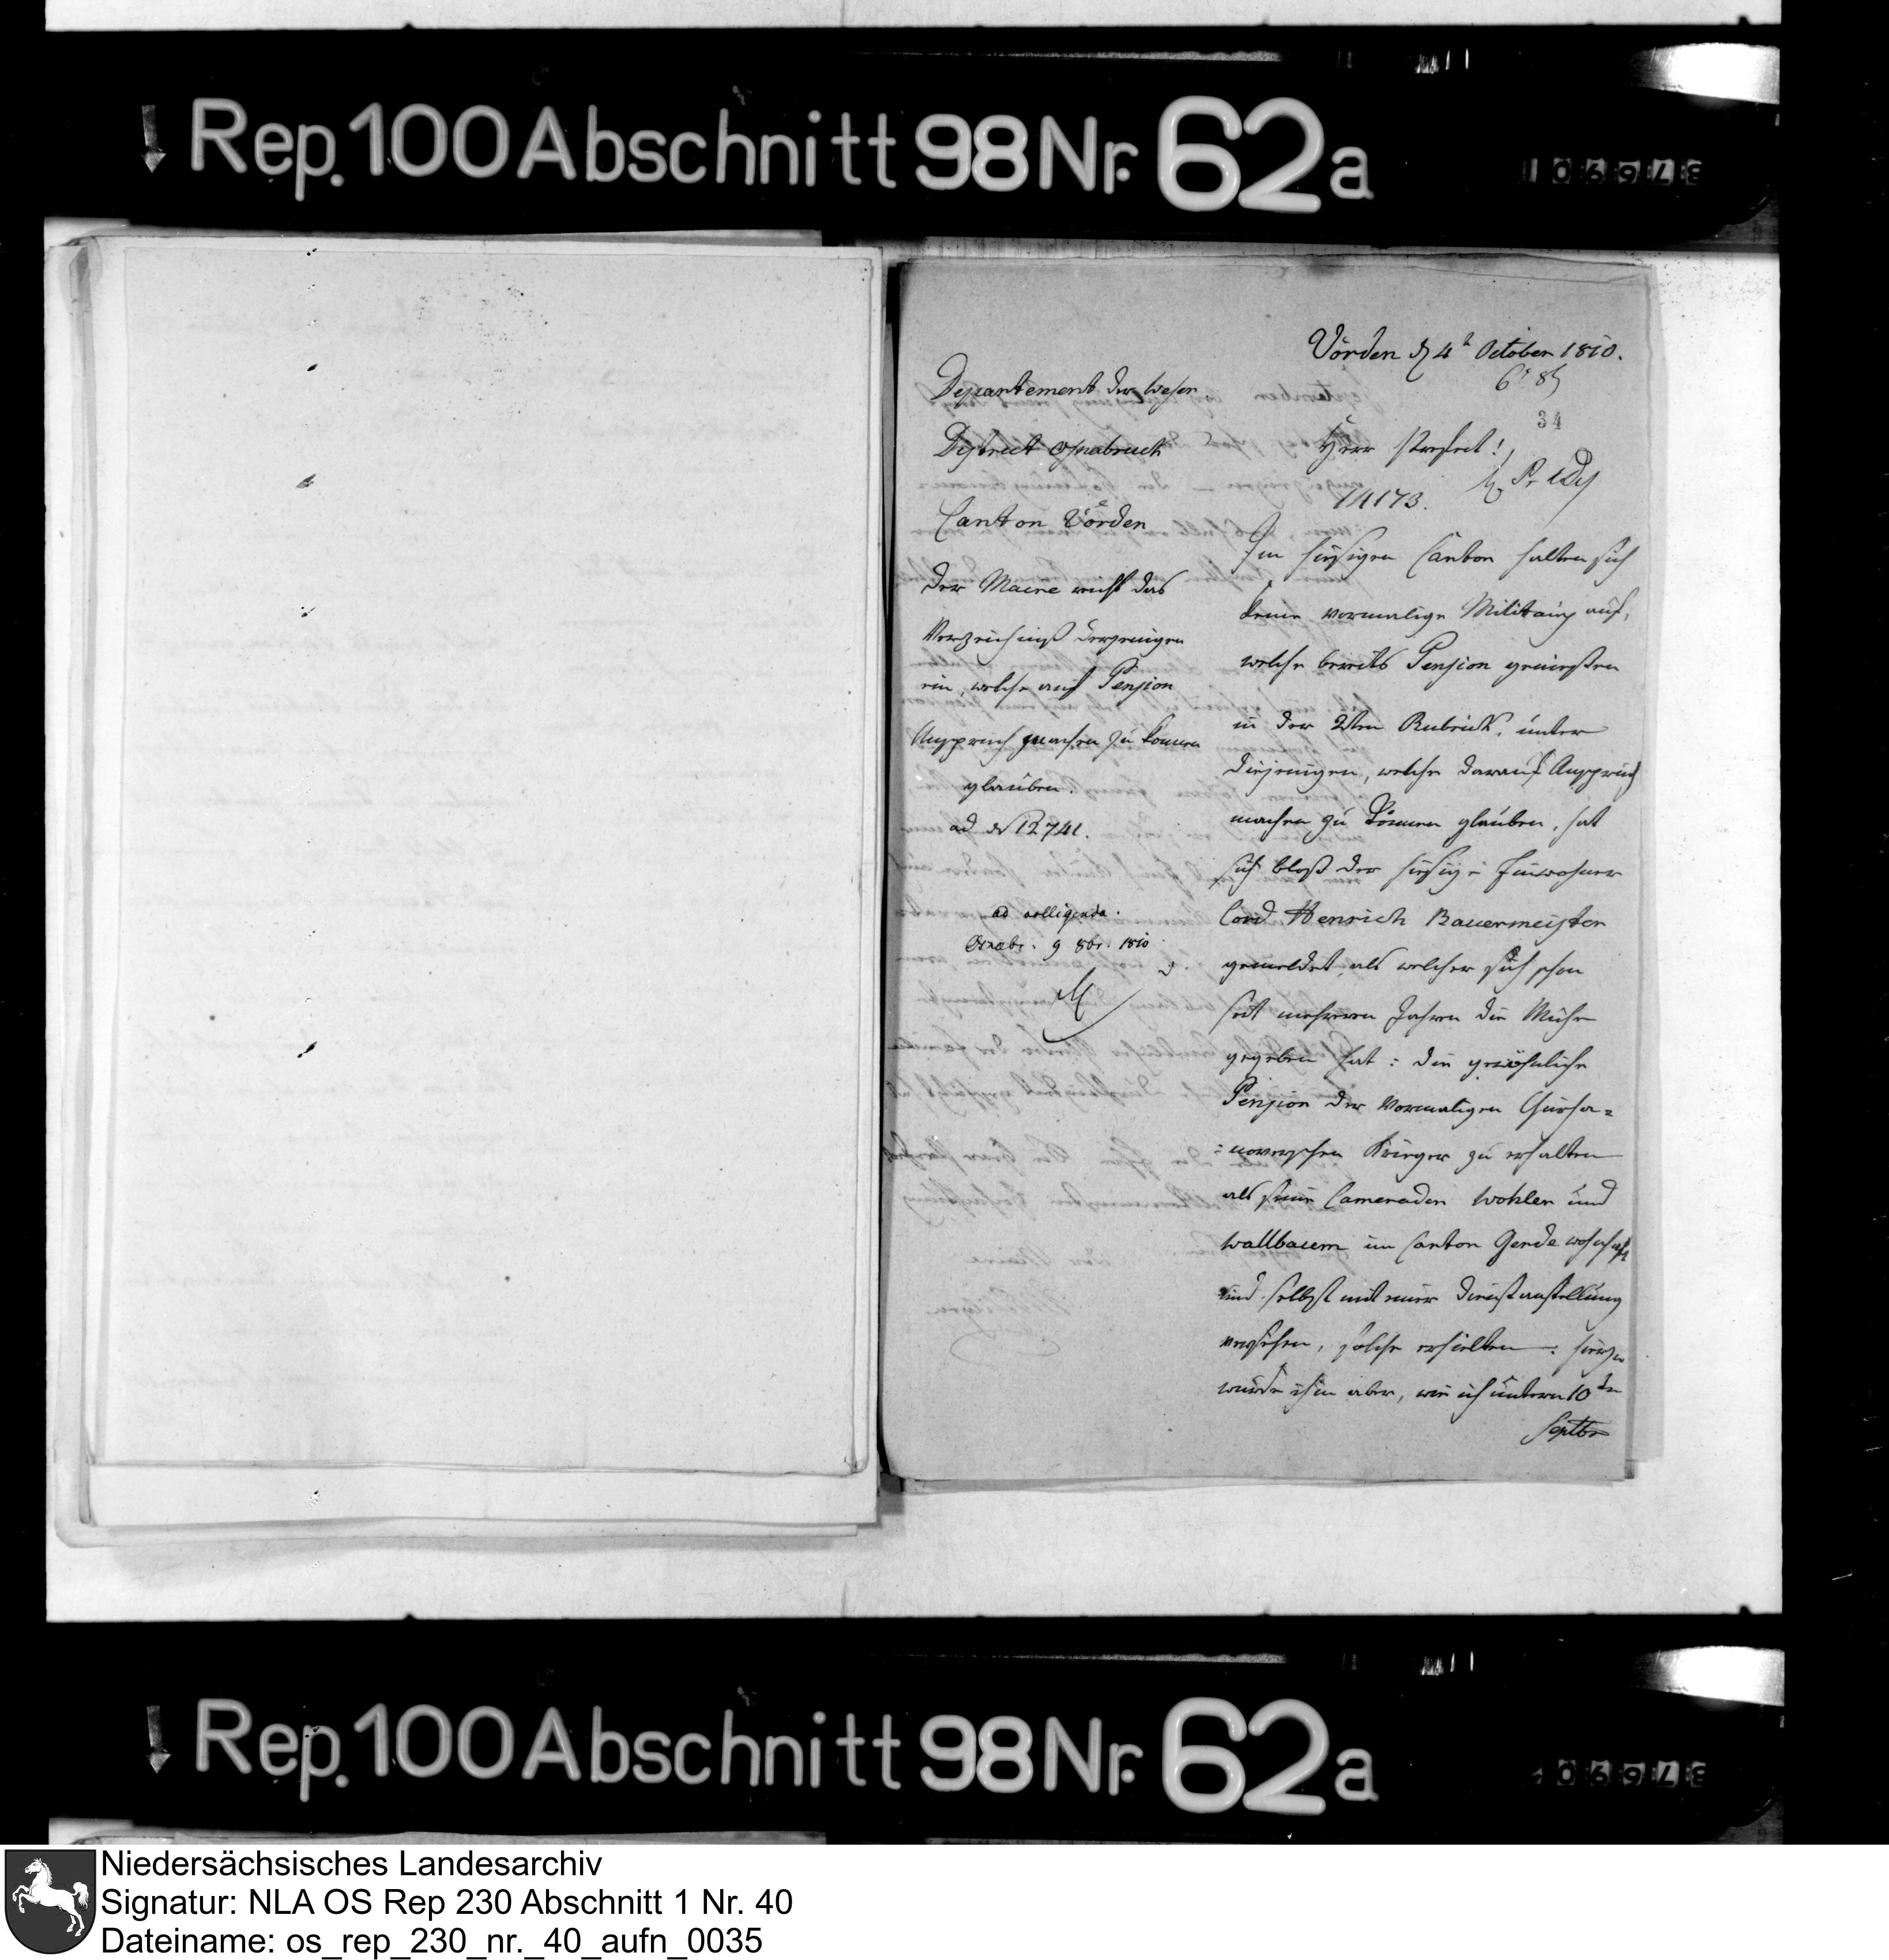 Rep. 100 Abschnitt 98 Nr. 62a
Vörden d 4t October 1810.
34
Departement der Weser
District Osnabruck
Canton Vörden
Der Maire reicht das
Verzeichniß derjenigen
ein, welche auf Pension
Anspruch machen zu können
glauben.
ad N 12741.
ad colligenda.
Osnabr. 9 8br. 1810
Herr Praefect!
14173.
Im hiesigen Canton halten sich
keine vormalige Militairs auf,
welche bereits Pension genießen
in der 2ten Rubrick, unter
diejenigen, welche darauf Anspruch
machen zu können glauben, hat
sich bloß der hiesige Einwohner
Cord Henrich Bauermeister
gemeldet, als welcher sich schon
seit mehreren Jahren die Mühe
gegeben hat: die gewöhnliche
Pension der vormaligen Churha=
=noverschen Krieger zu erhalten
als seine Cameraden Wohler und
Wallbaum im Canton Gerde wohnhaft
und selbst mit einer Dienstanstellung
versehen, solche erhielten. hierzu
wurde ihm aber, wie ich unterm 10ten
Septbr
Rep. 100 Abschnitt 98 Nr. 62a
Niedersächsisches Landesarchiv
Signatur: NLA OS Rep 230 Abschnitt 1 Nr. 40
Dateiname: os_rep_230_nr._40_aufn_0035